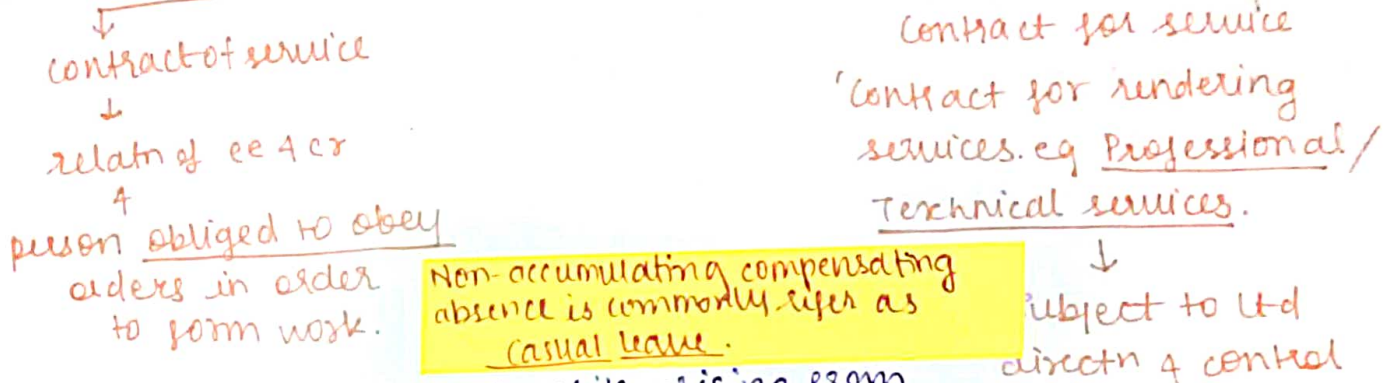 contract of service
relatn of ee & er
&
person obliged to obey
orders in order
to form work.
contract for service
'contract for rendering
services. eg Professional /
Technical services.
ubject to ltd
directn & control
Non-accumulating compensating
absence is commonly refer as
casual leave.